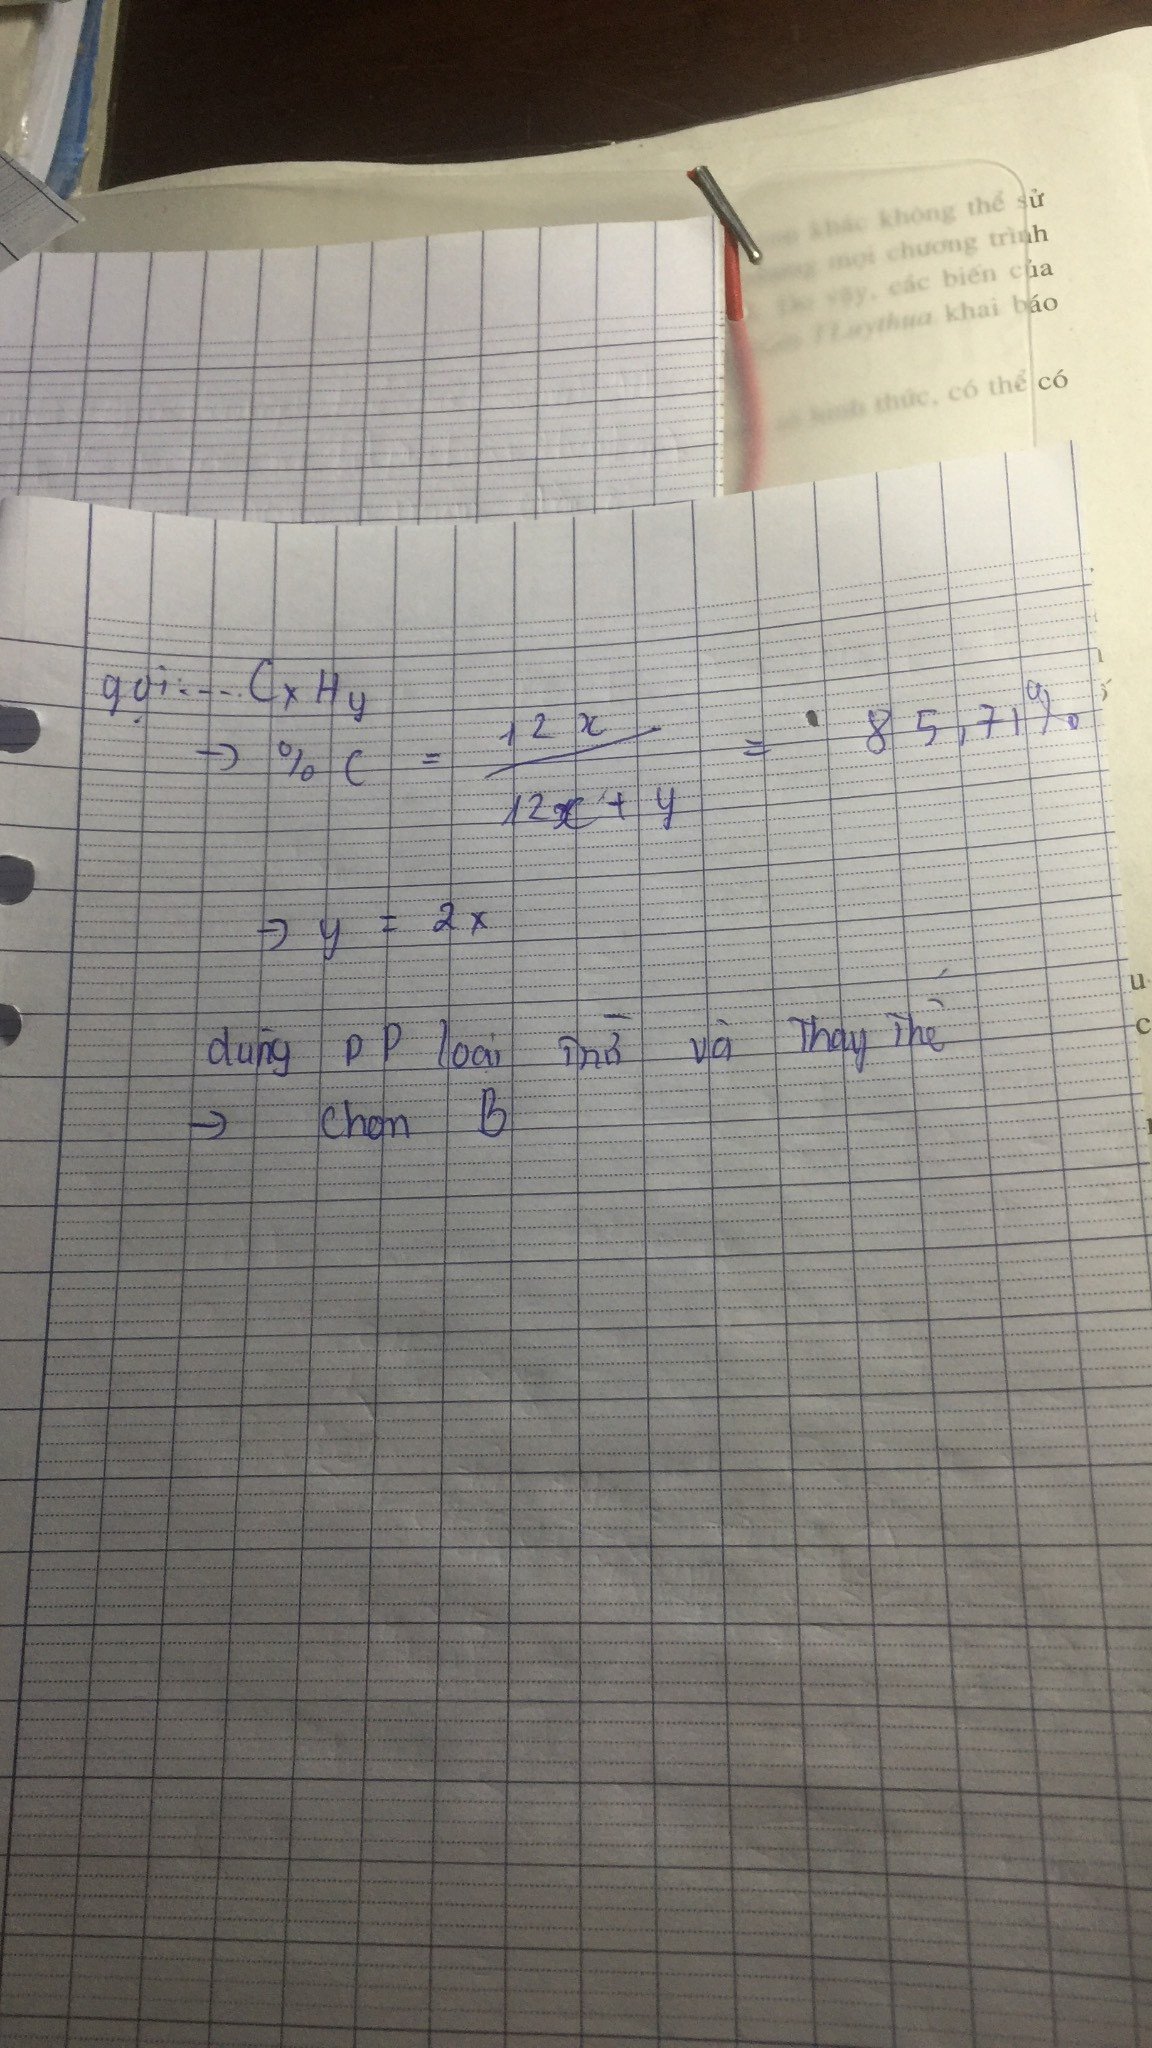 khác không thể sử
mọi chương trình
vậy, các biến của
TLuythua khai báo
hình thức, có thể có
gọi:.... CxHy
→ % C = 12x / 12x + y = 85,71%
→ y = 2x
dùng PP loại trừ và thay thế
→ chọn B
u
c